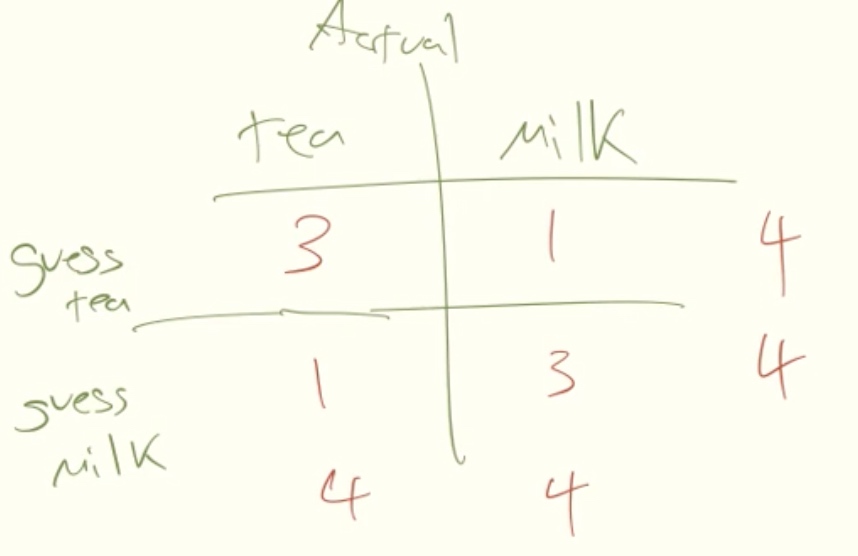 Actual
tea milk
guess tea 3 1 4
guess milk 1 3 4
4 4